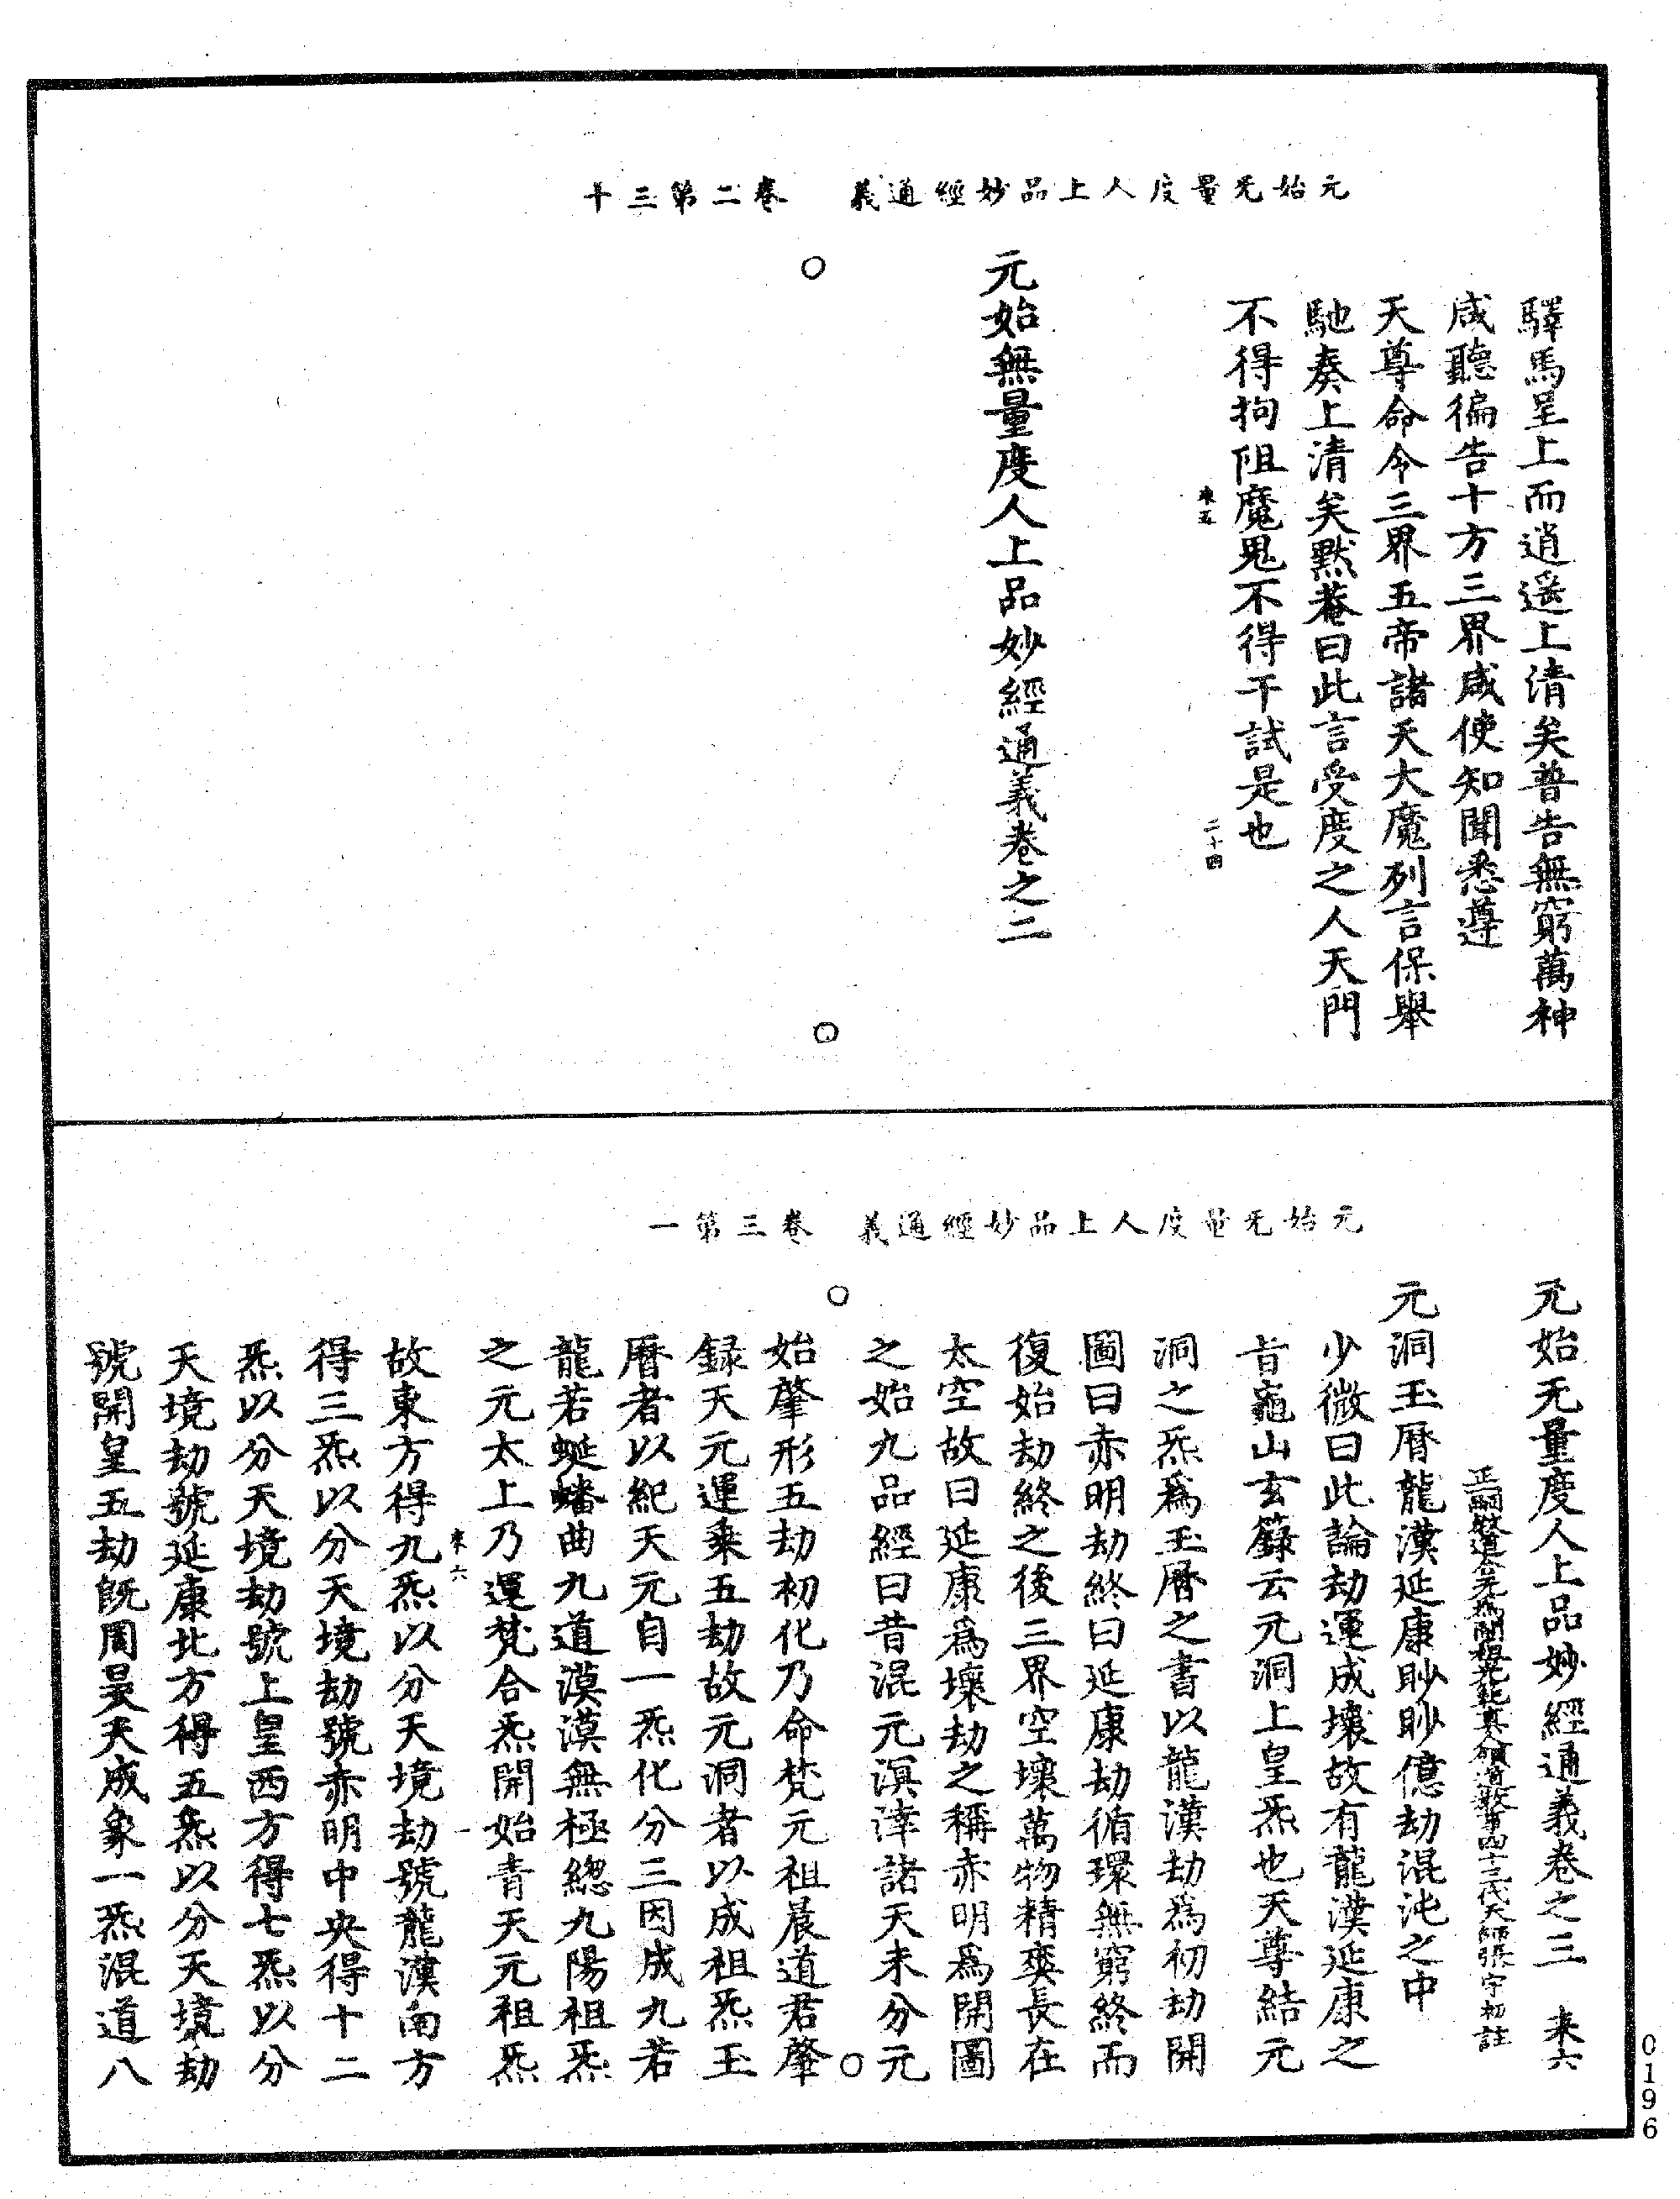 元始旡量度人上品妙經通義　卷二第三十
驛馬呈上而逍遥上清矣普告無窮萬神
咸聽徧告十方三界咸使知聞悉遵
天尊命令三界五帝諸天大魔列言保舉
馳奏上清矣默菴曰此言受度之人天門
不得拘阻魔鬼不得干試是也
二十四
元始無量度人上品妙經通義卷之二
元始旡量度人上品妙經通義　卷三第一
元始旡量度人上品妙經通義卷之三　来六
正嗣教道合無爲闡祖光範真人領道教事四十三代天師張宇初註
元洞玉曆龍漢延康眇眇億劫混沌之中
少微曰此論劫運成壞故有龍漢延康之
旨龜山玄籙云元洞上皇炁也天尊結元
洞之炁爲玉曆之書以龍漢劫爲初劫開
圖曰赤明劫終曰延康劫循環無窮終而
復始劫終之後三界空壞萬物精爽長在
太空故曰延康爲壞劫之稱赤明爲開圖
之始九品經曰昔混元溟涬諸天未分元
始肇形五劫初化乃命梵元祖晨道君肇
録天元運乗五劫故元洞者以成祖炁玉
曆者以紀天元自一炁化分三因成九若
龍若蜒蟠曲九道漠漠無極緫九陽祖炁
之元太上乃運梵合炁開始青天元祖炁
来六
一
故東方得九炁以分天境劫號龍漢南方
得三炁以分天境劫號赤明中央得十二
炁以分天境劫號上皇西方得七炁以分
天境劫號延康北方得五炁以分天境劫
號開皇五劫旣周昊天成象一炁混道八
0196